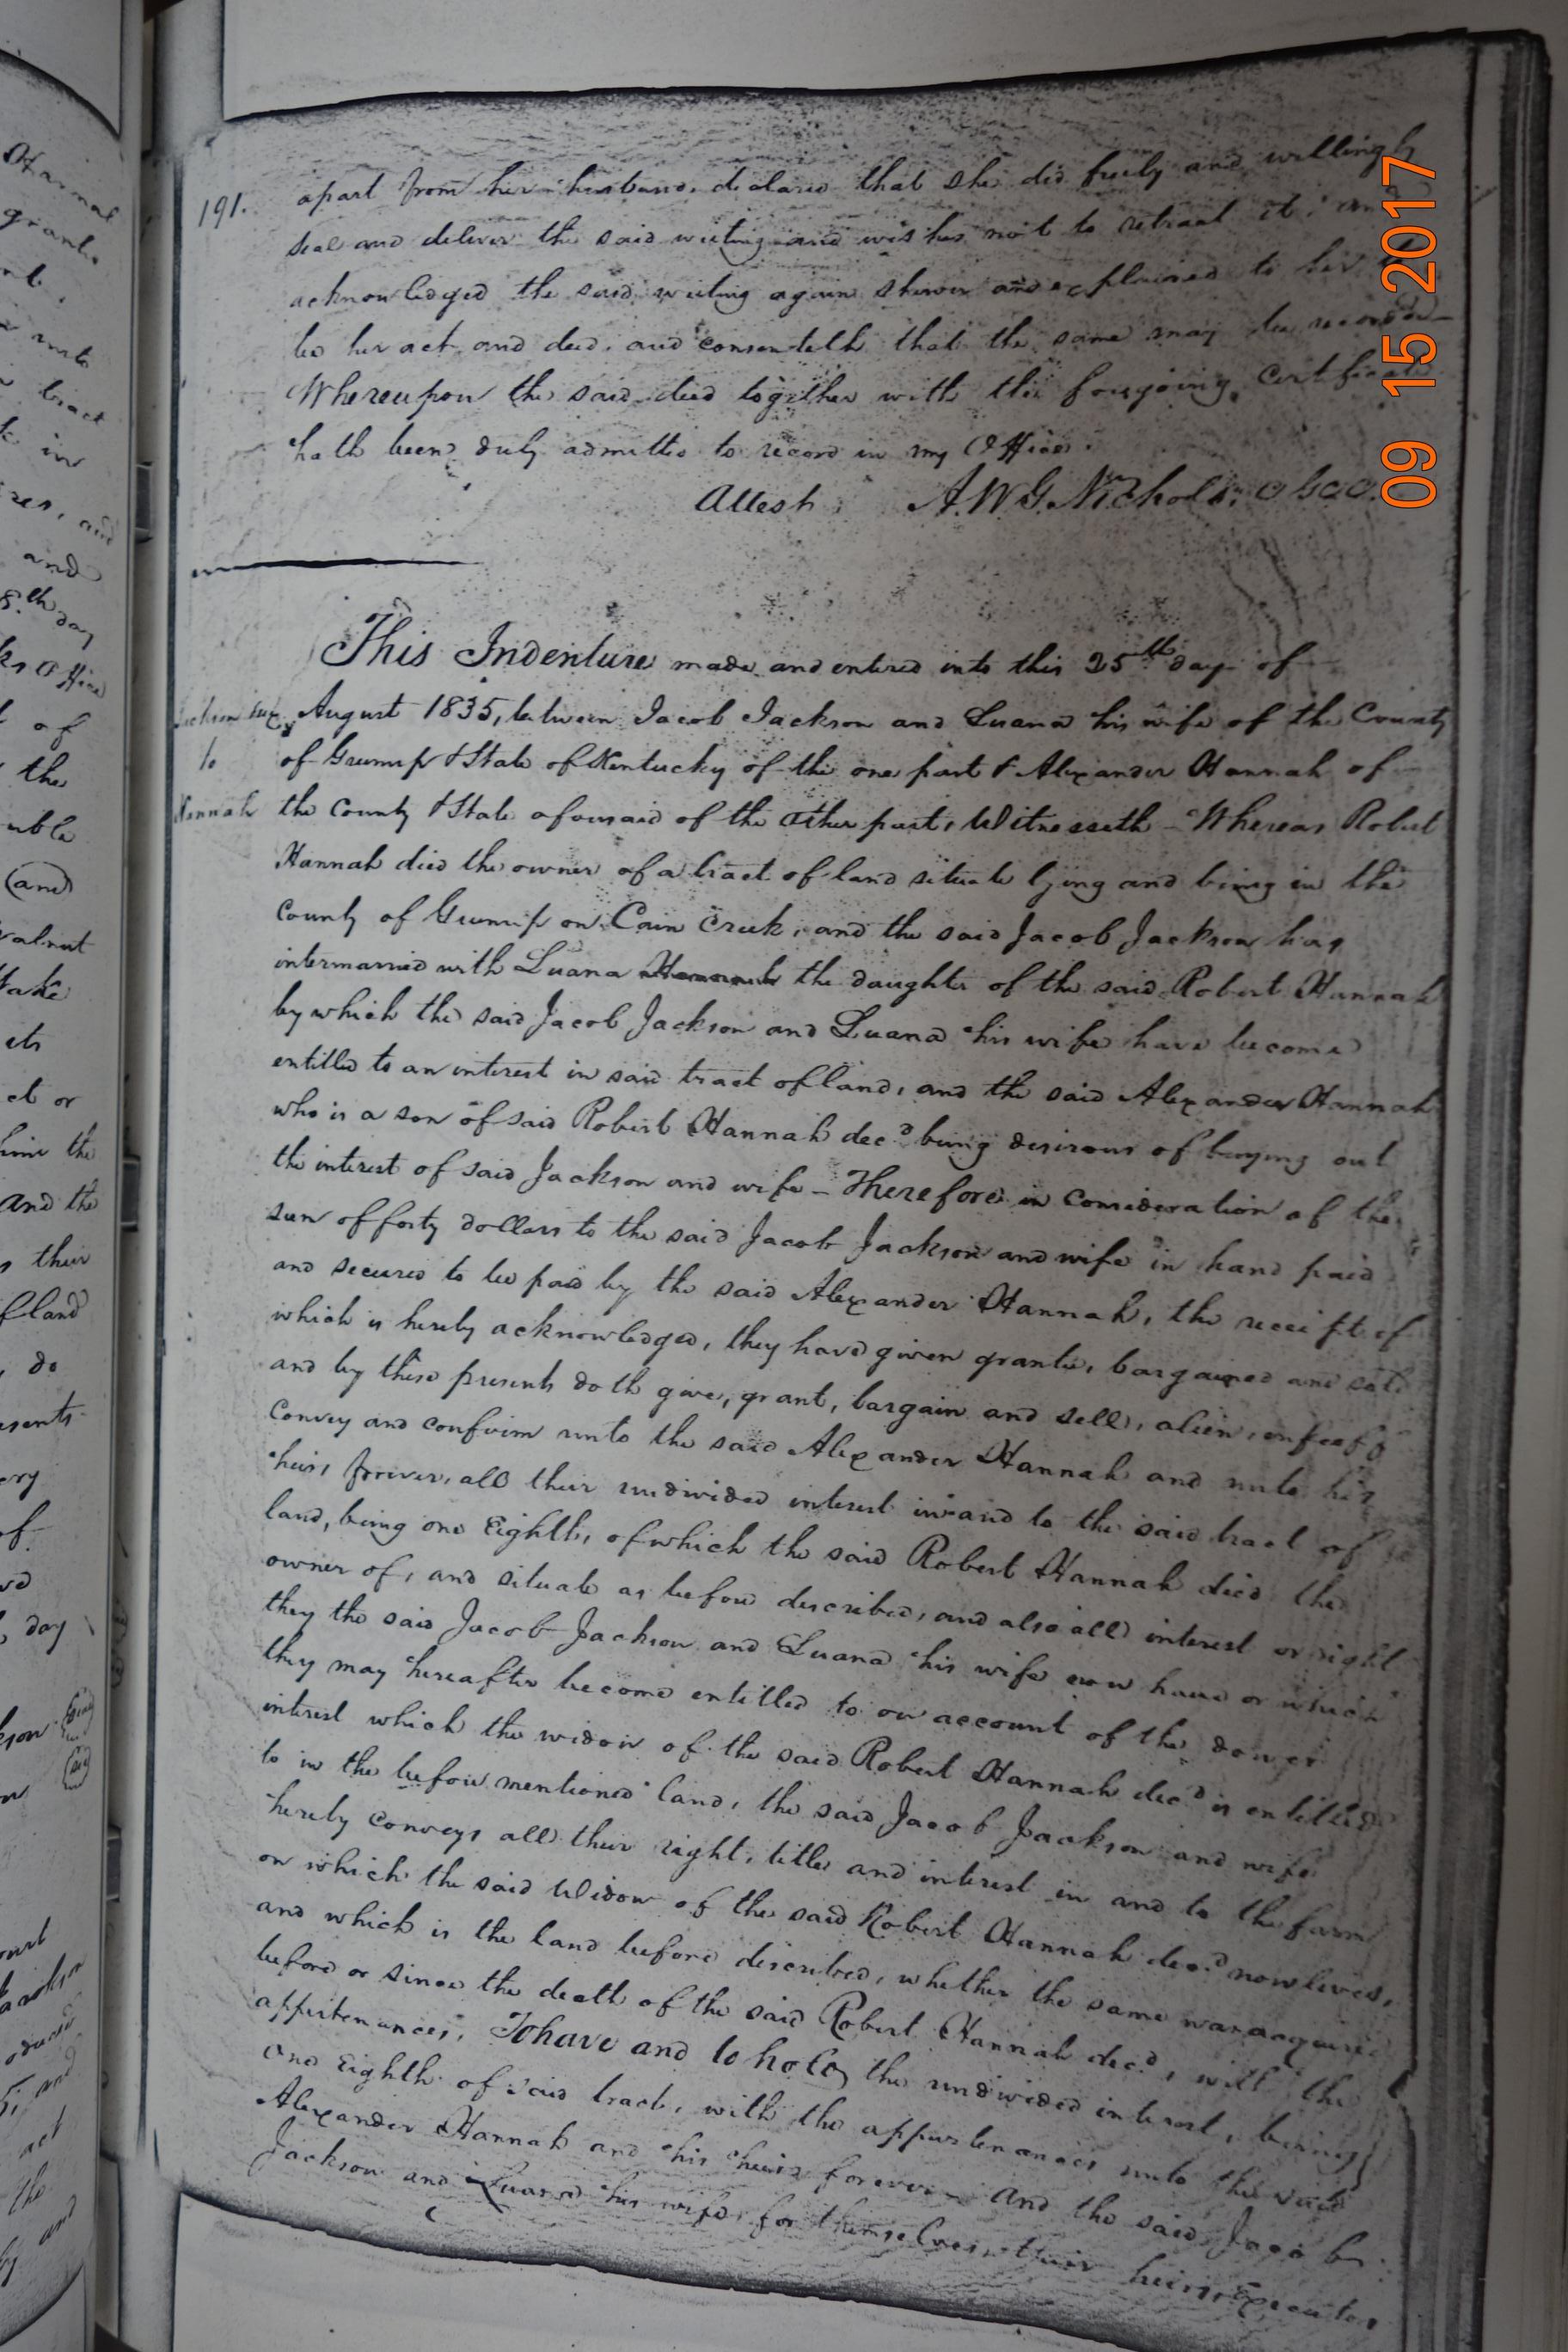 191.
apart from her husband, declared that she did freely and willingly
seal and deliver the said writing and wishes not to retract it, and
acknowledged the said writing again shewn and explained to her to
be her act and deed, and consenteth that the same may be recorded
Whereupon the said deed together with this foregoing Certificate
hath been duly admitted to record in my Office.
Attest, A. W. G. Nichols,
This Indenture made and entered into this 25th day of
Jackson & ux
to
Hannah
August 1835, between Jacob Jackson and Luana his wife of the County
of Greenup & State of Kentucky of the one part & Alexander Hannah of
the County & State aforesaid of the other part, Witnesseth - Whereas Robert
Hannah died the owner of a tract of land situate lying and being in the
County of Greenup on Cain Creek, and the said Jacob Jackson has
intermarried with Luana Hannah the daughter of the said Robert Hannah
by which the said Jacob Jackson and Luana his wife have become
entitled to an interest in said tract of land, and the said Alexander Hannah
who is a son of said Robert Hannah decd being desirous of buying out
the interest of said Jackson and wife - Therefore in consideration of the
sum of forty dollars to the said Jacob Jackson and wife in hand paid
and secured to be paid by the said Alexander Hannah, the receipt of
which is hereby acknowledged, they have given granted, bargained and sold
and by these presents doth give, grant, bargain and sell, alien, enfeoff
convey and confirm unto the said Alexander Hannah and unto his
heirs forever, all their undivided interest in and to the said tract of
land, being one Eighth, of which the said Robert Hannah died the
owner of, and situate as before described, and also all interest or right
they the said Jacob Jackson and Luana his wife now have or which
they may hereafter become entitled to on account of the dower
interest which the widow of the said Robert Hannah decd is entitled
to in the before mentioned land, the said Jacob Jackson and wife
hereby conveys all their right, title and interest in and to the farm
on which the said Widow of the said Robert Hannah decd now lives,
and which is the land before described, whether the same was acquired
before or since the death of the said Robert Hannah decd, with the
appurtenances, To have and to hold the undivided interest, being
one Eighth of said tract, with the appurtenances unto the said
Alexander Hannah and his heirs forever - And the said Jacob
Jackson and Luana his wife, for themselves, their heirs, Executors
09 15 2017